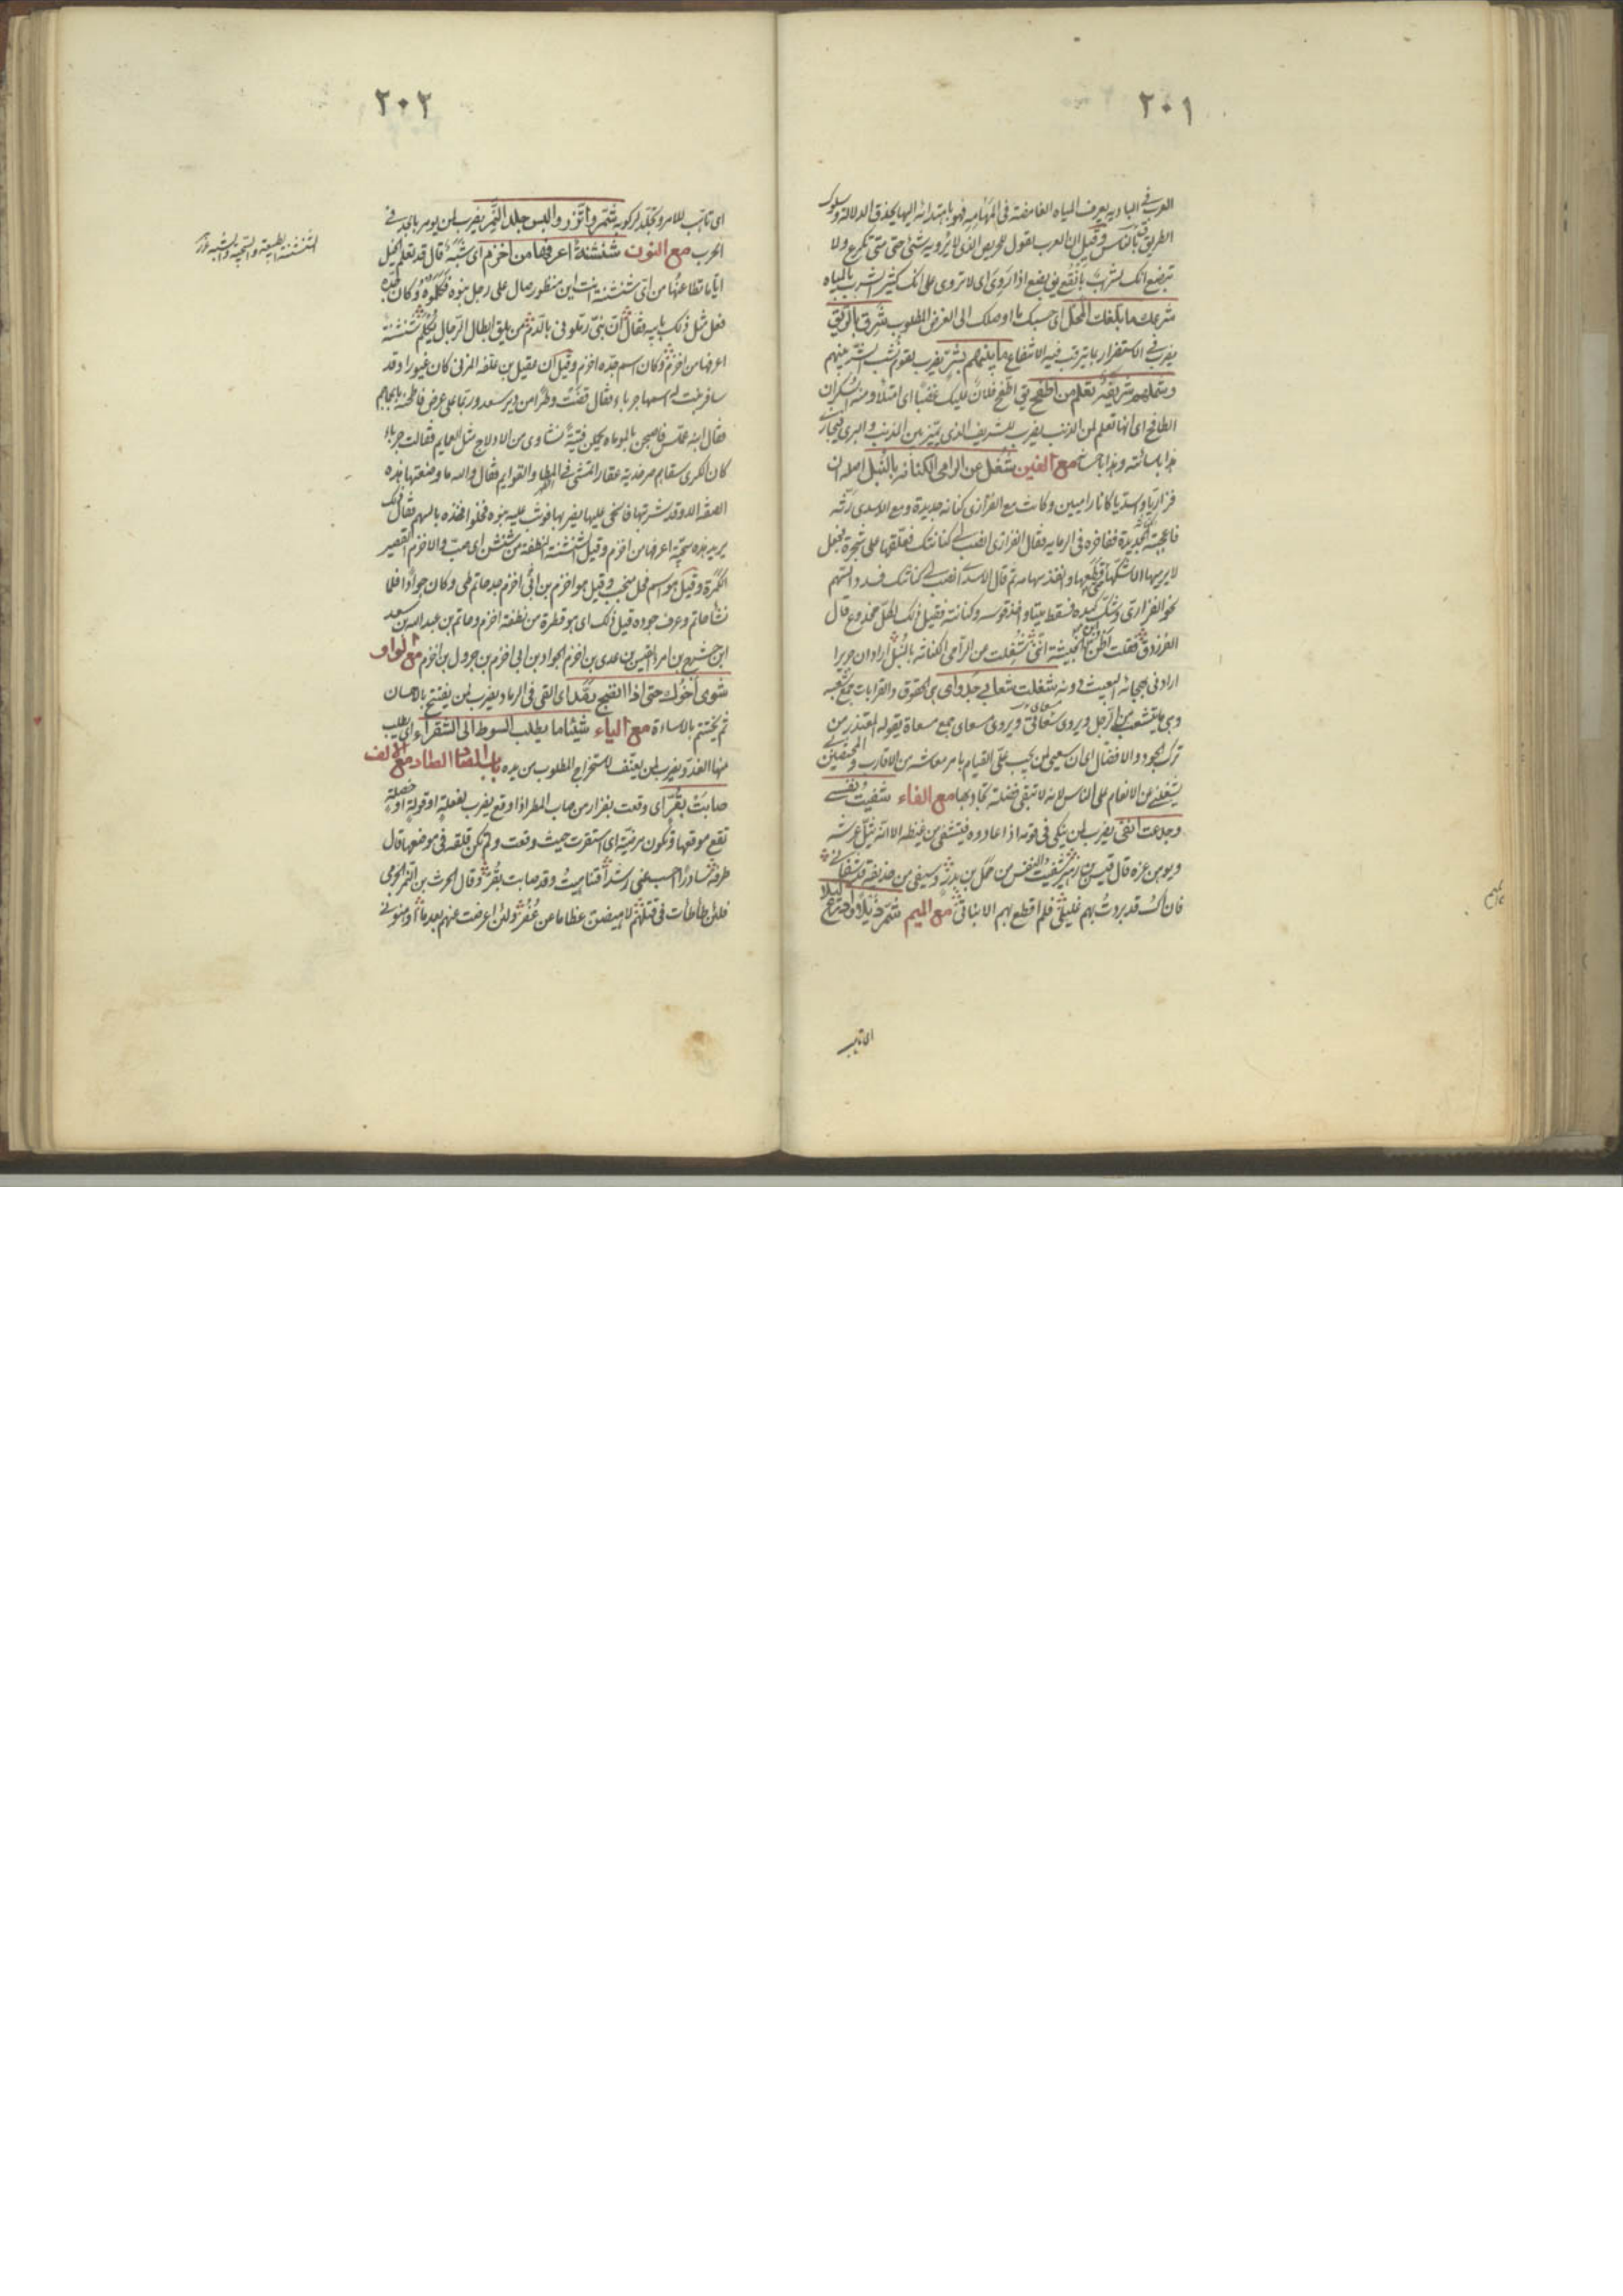 ٢٠١
العرب في البادية يعرف المياه الغامضة في المهامه فهو باهتدائه اليها يحذق الدلالة وسلوك
الطريق بالناس وقيل ان العرب تقول للحريص الذي لا يرويه شئ حتى متى تكرع ولا
تبضع انك لشراب بانقع بضع اذا روى اى لا تروى على انك كثير الشرب بالمياه
شرعك ما بلغك المحل اى حسبك ما اوصلك الى الغرض المطلوب شرق بالريق
يضرب في الاستضرار بما يترقب فيه الانتفاع ما بينهم بشر يضرب لقوم نشب الشر بينهم
وشملهم تعلم من اطفح اطفح فلان عليك غضبا اى امتلأ ومنه السكران
الطافح اى انها تعلم لمن الذنب يضرب للشريف الذي يميز بين الذنب والبرى فيجازى
هذا باساءته وهذا باحسانه مع الغين شغل عن الرامي الكنانة بالنبل اصله ان
فزاريا واسديا كانا راميين وكانت مع الفزازى كنانة جديدة ومع الاسدى رثة
فاعجبته الجديدة ففاخره في الرماية فقال الفزارى انصب لى كنانتك فعلقها على شجرة فجعل
لا يرميها الا شكها حتى قطعها وانفذ سهامه ثم قال الاسدى انصب لى كنانتك فسدد السهم
نحو الفزارى وشك كبده فسقط ميتا واخذ قوسه وكنانته فقيل ذلك لكل مخدوع قال
الفرزدق فقلت اظن ابن الخبيثة انني شغلت عن الرامي الكنانة بالنبل اراد ان جريرا
اراد في هجائه البعيث دونه شغلت شعابي جدواى هي الحقوق والقرابات جمع شعبة
وهي ما يتشعب من الرجل ويروى سعاتي ويروى مساعى جمع مسعاة يقوله المعتذر من
ترك الجود والافضال اى ان سعيى لمن يجب على القيام بامر معاشه من الاقارب والمختصين
يشغلني عن الانعام على الناس لانه لا تبقى فضلة تجاد بها مع الفاء شفيت نفسى
وجدعت انفى يضرب لمن ينكى في قومه اذا عادوه فيتشفى من غيظه الا انه يثل عرشه
ويوهن عزه قال قيس بن زهير شفيت النفس من حمل بن بدر وسيفى من حذيفة قد شفانى
فان اك قد بردت بهم غليلى فلم اقطع بهم الا بنانى مع الميم شمر ذيلا وادرع ليلا
اى تاهب
٢٠٢
اى تاهب للامر وتجلد لركوبه شمر واتزر والبس جلد النمر يضرب لمن يومر بالجد في
الحرب مع النون شنشنة اعرفها من اخزم اى شبه قال قد تعلم الخيل
اياما تطاعنها من اى شنشنة انت ابن منظور صال على رجل بنوه فكلموه وكان جده
فعل مثل ذلك بابيه فقال ان بنى رملونى بالدم من يلق ابطال الرجال يكلم شنشنة
اعرفها من اخزم وكان اسم جده اخزم وقيل ان عقيل بن علفة المزنى كان غيورا وقد
سافر ببنت له اسمها جرباء فقال قضت وطرا من دير سعد وربما على عرض ناطحنه بالجماجم
فقال ابنه عملس فاصبحن بالموماة يحملن فتية نشاوى من الادلاج ميل العمايم فقالت جرباء
كان الكرى سقاهم صرخدية عقارا تمشى في المطا والقوايم فقال والله ما وصفتها هذه
الصفة الا وقد شربتها فانحى عليها يضربها فوثب عليه بنوه فخلوا فخذه بالسهم فقال ذلك
يريد هذه سجية اعرفها من اخزم وقيل الشنشنة النطفة من شنشن اى صب والاخزم القصير
الكمرة وقيل هو اسم فحل منجب وقيل هو اخزم بن ابى اخزم جد حاتم طى وكان جوادا فلما
نشأ حاتم وعرف جوده قيل ذلك اى هو قطرة من نطفة اخزم وحاتم بن عبد الله بن سعد
ابن حشرج بن امرء القيس بن عدى بن اخزم الجواد بن ابى اخزم بن جرول بن اخزم مع الواو
شوى اخوك حتى اذا انضج رمد اى القى في الرماد يضرب لمن يفتتح بالاحسان
ثم يختتم بالاساءة مع الياء شيئا ما يطلب السوط الى الشقراء اى يطلب
منها العدو يضرب لمن يعنف لاستخراج المطلوب من يده باب الصاد مع الالف
صابت بقر اى وقعت بقرار من صاب المطر اذا وقع يضرب لفعلة او قولة او خصلة
تقع موقعها وتكون مرضية اى استقرت حيث وقعت ولم تكن قلقة في موضعها قال
طرفة سادرا احسب غيى رشدا فتناهيت وقد صابت بقر وقال الحرث بن النمر الجرمى
فلئن طأطأت في قتلهم لاهيضن عظامى عن عفر ولئن اعرضت عنهم بعد ما اوهنونى
الشنشنة الطبيعة والسجية والشبه